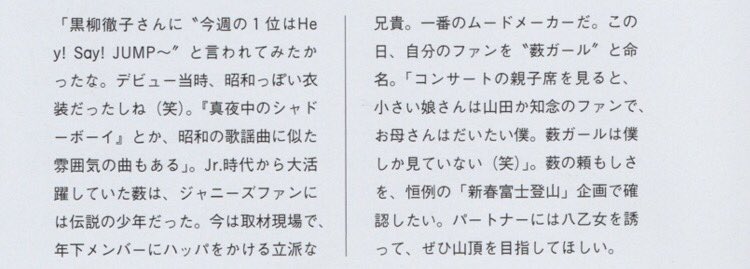 「黒柳徹子さんに〝今週の１位はHe
y! Say! JUMP～〟と言われてみたか
ったな。デビュー当時、昭和っぽい衣
装だったしね（笑）。『真夜中のシャド
ーボーイ』とか、昭和の歌謡曲に似た
雰囲気の曲もある」。Jr.時代から大活
躍していた薮は、ジャニーズファンに
は伝説の少年だった。今は取材現場で、
年下メンバーにハッパをかける立派な
兄貴。一番のムードメーカーだ。この
日、自分のファンを〝薮ガール〟と命
名。「コンサートの親子席を見ると、
小さい娘さんは山田か知念のファンで、
お母さんはだいたい僕。薮ガールは僕
しか見ていない（笑）」。薮の頼もしさ
を、恒例の「新春富士登山」企画で確
認したい。パートナーには八乙女を誘
って、ぜひ山頂を目指してほしい。